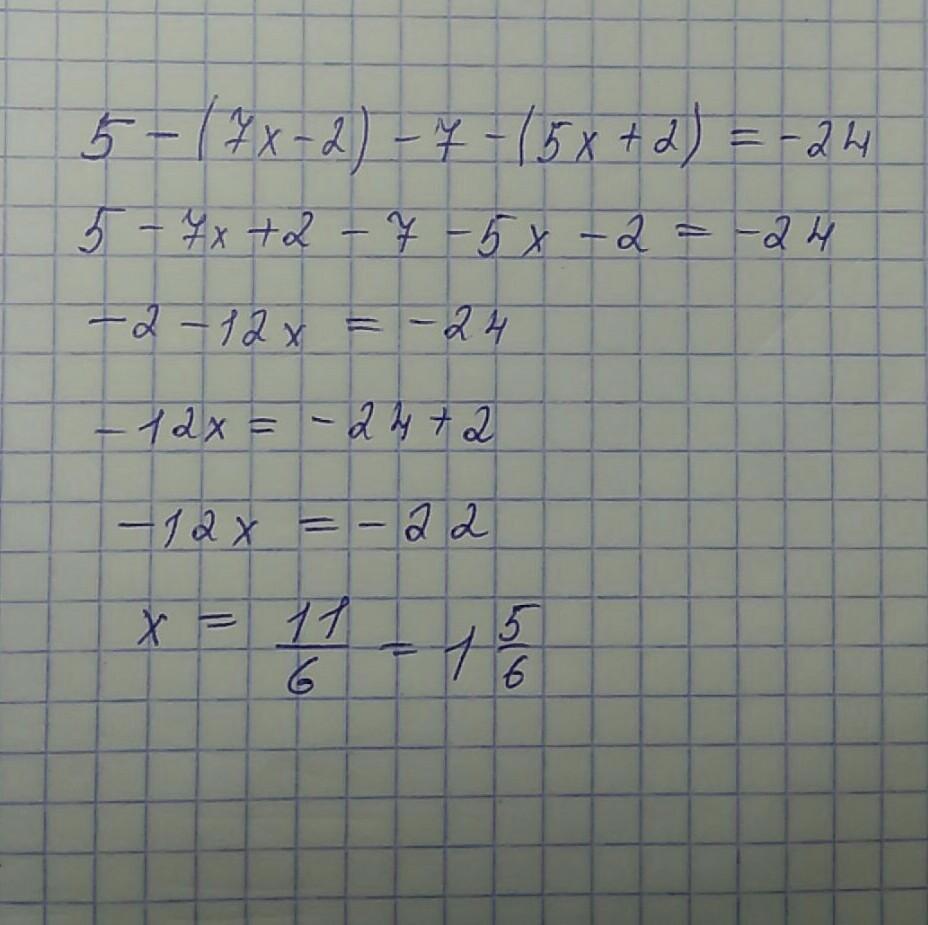 5 - (7x - 2) - 7 - (5x + 2) = -24
5 - 7x + 2 - 7 - 5x - 2 = -24
-2 - 12x = -24
-12x = -24 + 2
-12x = -22
x = 11/6 = 1 5/6